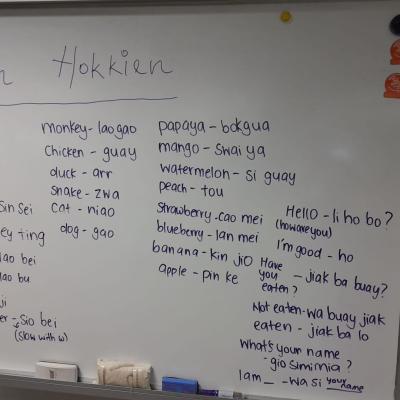 Hokkien
monkey - lao gao
chicken - guay
duck - arr
snake - zwa
cat - niao
dog - gao
papaya - bokgua
mango - swai ya
watermelon - si guay
peach - tou
strawberry - cao mei
blueberry - lan mei
banana - kin jio
apple - pin ke
Hello - li ho bo?
(how are you)
I'm good - ho
Have you eaten? - jiak ba buay?
Not eaten - wa buay jiak
eaten - jiak ba lo
What's your name
- gio simimia?
I am _ - wa si your name
sin sei
ey ting
lao bei
lao bu
ji
er - sio bei
(slow with w)